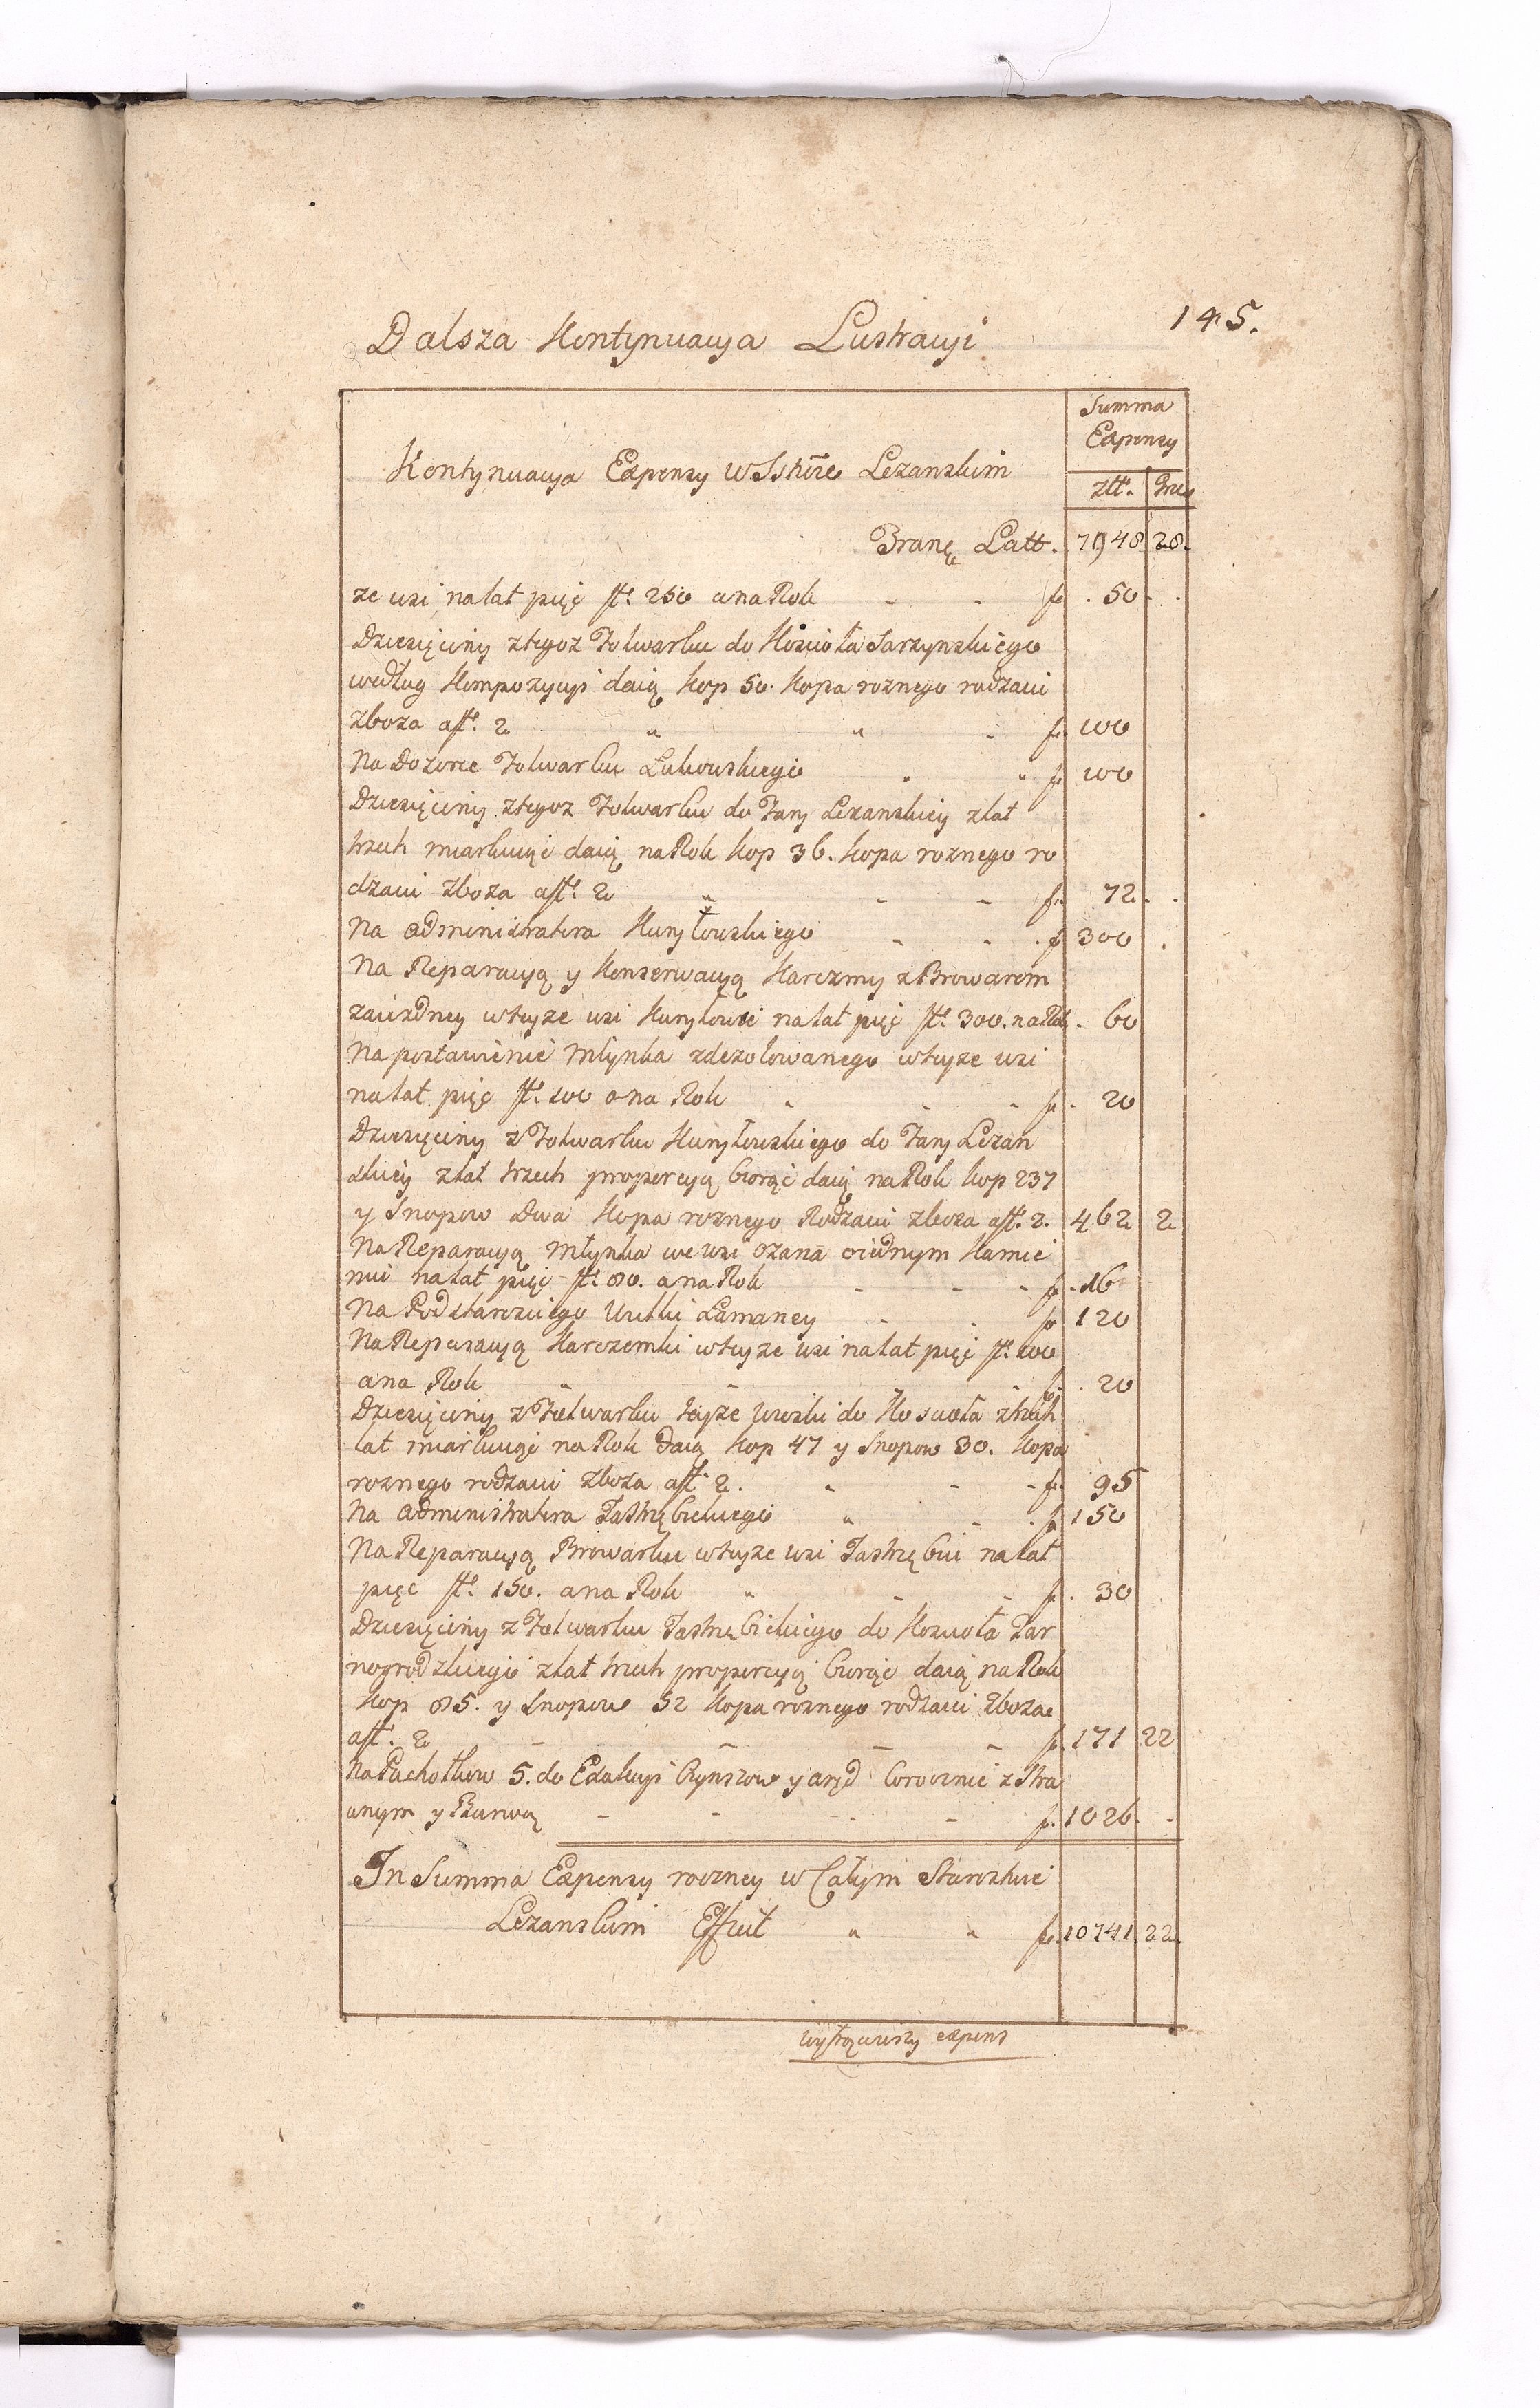 145.
Dalsza Kontynuacya Lustracyi
Summa
Expensy
Kontynuacya Expensy w Sstwie Lezanskim
złł. Grey
Tranę Latt. 7948 28.
ze wsi na lat pięć fł. 250 a na Rok - - f. 50 - .
Dziesięciny z tegoz Folwarku do Kościoła Sarzynskiego
według Kompozycyi daią kop 50. kopa roznego rodzaiu
zboza a fł. 2 " " - f. 100
Na Dozorce Folwarku Łukowskiego " " f. 100
Dziesięciny z tegoz Folwarku do Fary Lezanskiey z lat
trzech miarkuiąc daią na Rok kop 36. kopa roznego ro
dzaiu zboza a fł. 2 " - - f. 72 - .
Na administratora Kuryłowskiego - - . f. 300 .
Na Reparacyą y Konserwacyą Karczmy z Browarem
zaiezdney w teyze wsi Kuryłowce na lat pięć fł. 300. na Rok . 60
Na postawienie Młynka zdezolowanego w teyze wsi
na lat pięć fł. 100 a na Rok - - - f. 20
Dziesięciny z Folwarku Kuryłowskiego do Fary Lezan
skiey z lat trzech proporcyą biorąc daią na Rok kop 237
y Snopow Dwa Kopa roznego Rodzaiu zboza a fł. 2. 462 2
Na Reparacyą Młynka we wsi Ozana o iednym Kamie
niu na lat pięć fł. 80. a na Rok - - - f. 16
Na Podstarosciego Wolki Łamaney - - f. 120
Na Reparacyą Karczemki w teyze wsi na lat pięć fł. 100
a na Rok " - - f. 20
Dziesięciny z Folwarku teyze Wioski do Kosciola z trzech
lat miarkuiąc na Rok daią kop 47 y Snopow 30. Kopa
roznego rodzaiu zboza a fł. 2. - - - f. 95
Na administratora Jastrzębickiego " - . f. 150
Na Reparacyą Browarku w teyze wsi Jastrzębcu na lat
pięć fł. 150. a na Rok " - - f. 30
Dziesięciny z Folwarku Jastrzębickiego do Kosciola Tar
nogrodzkiego z lat trzech proporcyą biorąc daią na Rok
kop 85. y Snopow 52 kopa roznego rodzaiu zboza
a fł. 2 - - - - f. 171 22
Na Pachołkow 5. do Exakcyi Czynszow y aręd corocznie z Stra
wnym y Barwą - - - - f. 1026. -
In Summa Expensy roczney w Całym Starostwie
Lezanskim Efficit " " f. 10741. 22.
wytrąciwszy expens